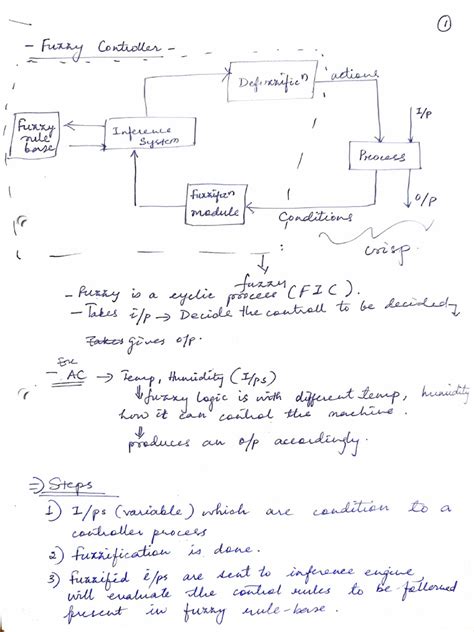 ①
- Fuzzy Controller -
Defuzzificⁿ
actions
I/P
Fuzzy
rule
base
Inference
System
Process
Fuzzifcⁿ
module
Conditions
O/P
crisp
fuzzy
- Fuzzy is a cyclic process (FIC).
- Takes i/p → Decide the controll to be decided,
Takes gives o/p.
Ex:
- AC → Temp, Humidity (I/ps)
↓ fuzzy logic is with different temp, humidity
how it can control the machine.
↓ produces an o/p accordingly.
⇒) Steps
1) I/ps (variable) which are condition to a
controller process
2) Fuzzification is done.
3) Fuzzified i/ps are sent to inference engine,
will evaluate the control rules to be followed
present in fuzzy rule-base.